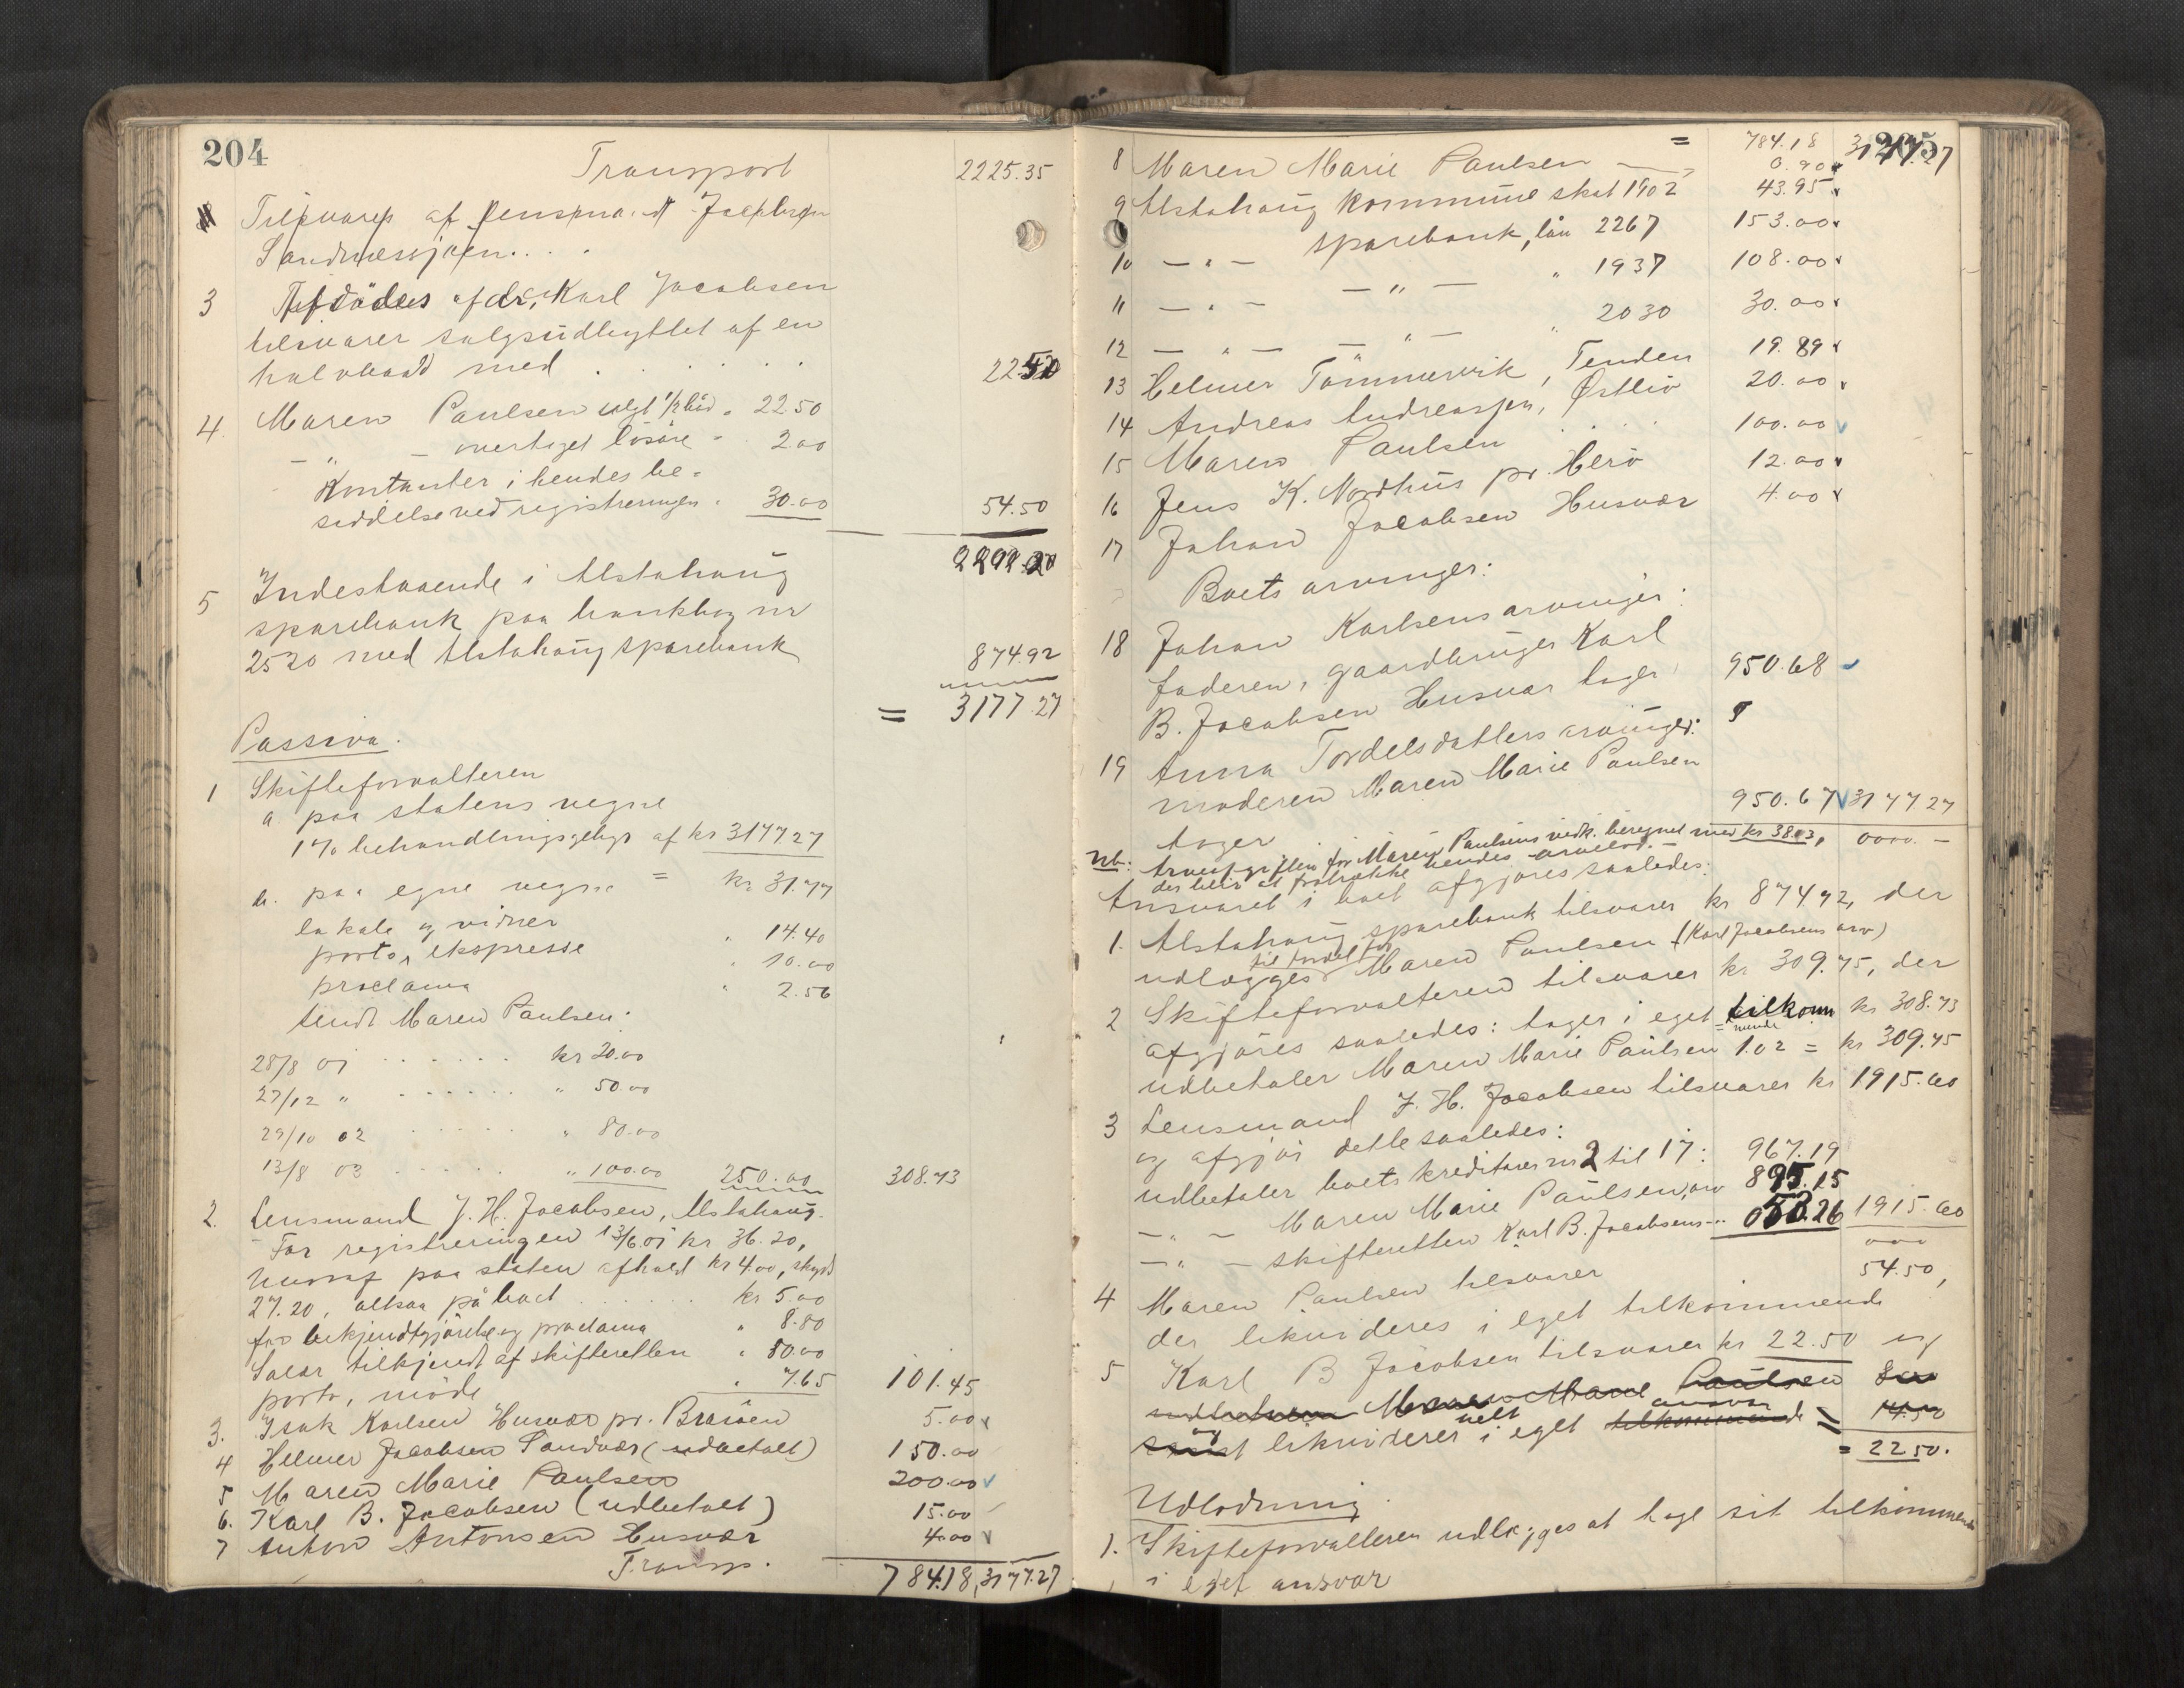 204
Transport 2225.35
Tilsvares af
Sandnessjøen. . .
3 Afdødes fader, Karl Jacobsen
tilsvarer salgsudbyttet af en
halvbaad med . . . . . . 22.50
4. Maren Paulsen solgt 1/2 båd " 22.50
— " — overtaget løsøre " 2.00
Kontanter i hendes be-
siddelse ved registreringen " 30.00 54.50
5 Indestaaende i Alstahaug
sparebank paa bankbog nr
2520 med Alstahaug sparebank 874.92
= 3177.27
Passiva.
1 Skifteforvalteren
a paa statens vegne
1% behandlingsgebyr af kr 3177 27
= kr 31.77
b. paa egne vegne
lokale og vidner " 14.40
porto, ekspresse " 10.00
proclama " 2.56
sendt Maren Paulsen:
28/8 01 . . . . . . kr 20.00
27/12 " . . . . . . " 50.00
29/10 02 . . . . . . " 80.00
13/8 03 . . . . . . " 100.00 250.00 308.73
2. Lensmand J. H. Jacobsen, Alstahaug.
For registreringen 13/6.01 kr 36.20,
hvoraf paa staten afholdt kr 4.00, skyds
27.20, altsaa på boet . . . . . . kr 5.00
for bekjendtgjørelse og proclama " 8.80
Salær tilkjendt af skifteretten " 80.00
porto, møde " 7.65 101.45
3. Isak Karlsen Husvær pr. Brasøen 5.00
4 Helmer Jacobsen Sandvær (udbetalt) 150.00
5 Maren Marie Paulsen 200.00
6. Karl B. Jacobsen (udbetalt) 15.00
7 Anton Antonsen Husvær 4.00
Transp. 784.18, 3177.27
205
= 784.18 3177.27
8 Maren Marie Paulsen — 0.90
9 Alstahaug kommune skat 1902 43.95
10 — " — sparebank, lån 2267 153.00
11 — " — — " — " 1937 108.00
12 — " — — " — " 2030 30.00
13 Helmer Tømmervik, Tenden 19.89
14 Andreas Andreassen, Østbø 20.00
15 Maren Paulsen . . . . 100.00
16 Jens K. Nordhus pr. Herø 12.00
17 Johan Jacobsen Husvær 4.00
Boets arvinger:
18 Johan Karlsens arvinger:
faderen, gaardbruger Karl
B. Jacobsen Husvær tager 950.68
19 Anna Tordelsdatters arvinger:
moderen Maren Marie Paulsen
tager 950.67 3177 27
Nb: Arveafgiften for Maren Paulsens vedk. beregnet med kr 38.03, 0000. —
der blir at fratrække hendes arvelod. —
Ansvaret i boet afgjøres saaledes:
1. Alstahaug sparebank tilsvarer kr 874 92, der
udlægges til fordel for Maren Paulsen (Karl Jacobsens arv)
2 Skifteforvalteren tilsvarer kr 309.75, der
afgjøres saaledes: tager i eget tilkommende kr 308.73
udbetaler Maren Marie Paulsen 1.02 = kr 309.75
3 Lensmand J. H. Jacobsen tilsvarer kr 1915.60
og afgjør dette saaledes:
udbetaler boets kreditorer nr 2 til 17: 967.19
— " — Maren Marie Paulsen, arv 895.15
— " — skifteretten Karl B. Jacobsens " 053.26 1915.60
000
4 Maren Paulsen tilsvarer 54.50,
der likvideres i eget tilkommende
5 Karl B Jacobsen tilsvarer kr 22.50 og
udbetaler Maren Marie Paulsen 8.00
og likviderer helt i eget tilkommende ansvar = 14.50
= 22 50.
Udlodning.
1. Skifteforvalteren udlægges at tage sit tilkommende
i eget ansvar